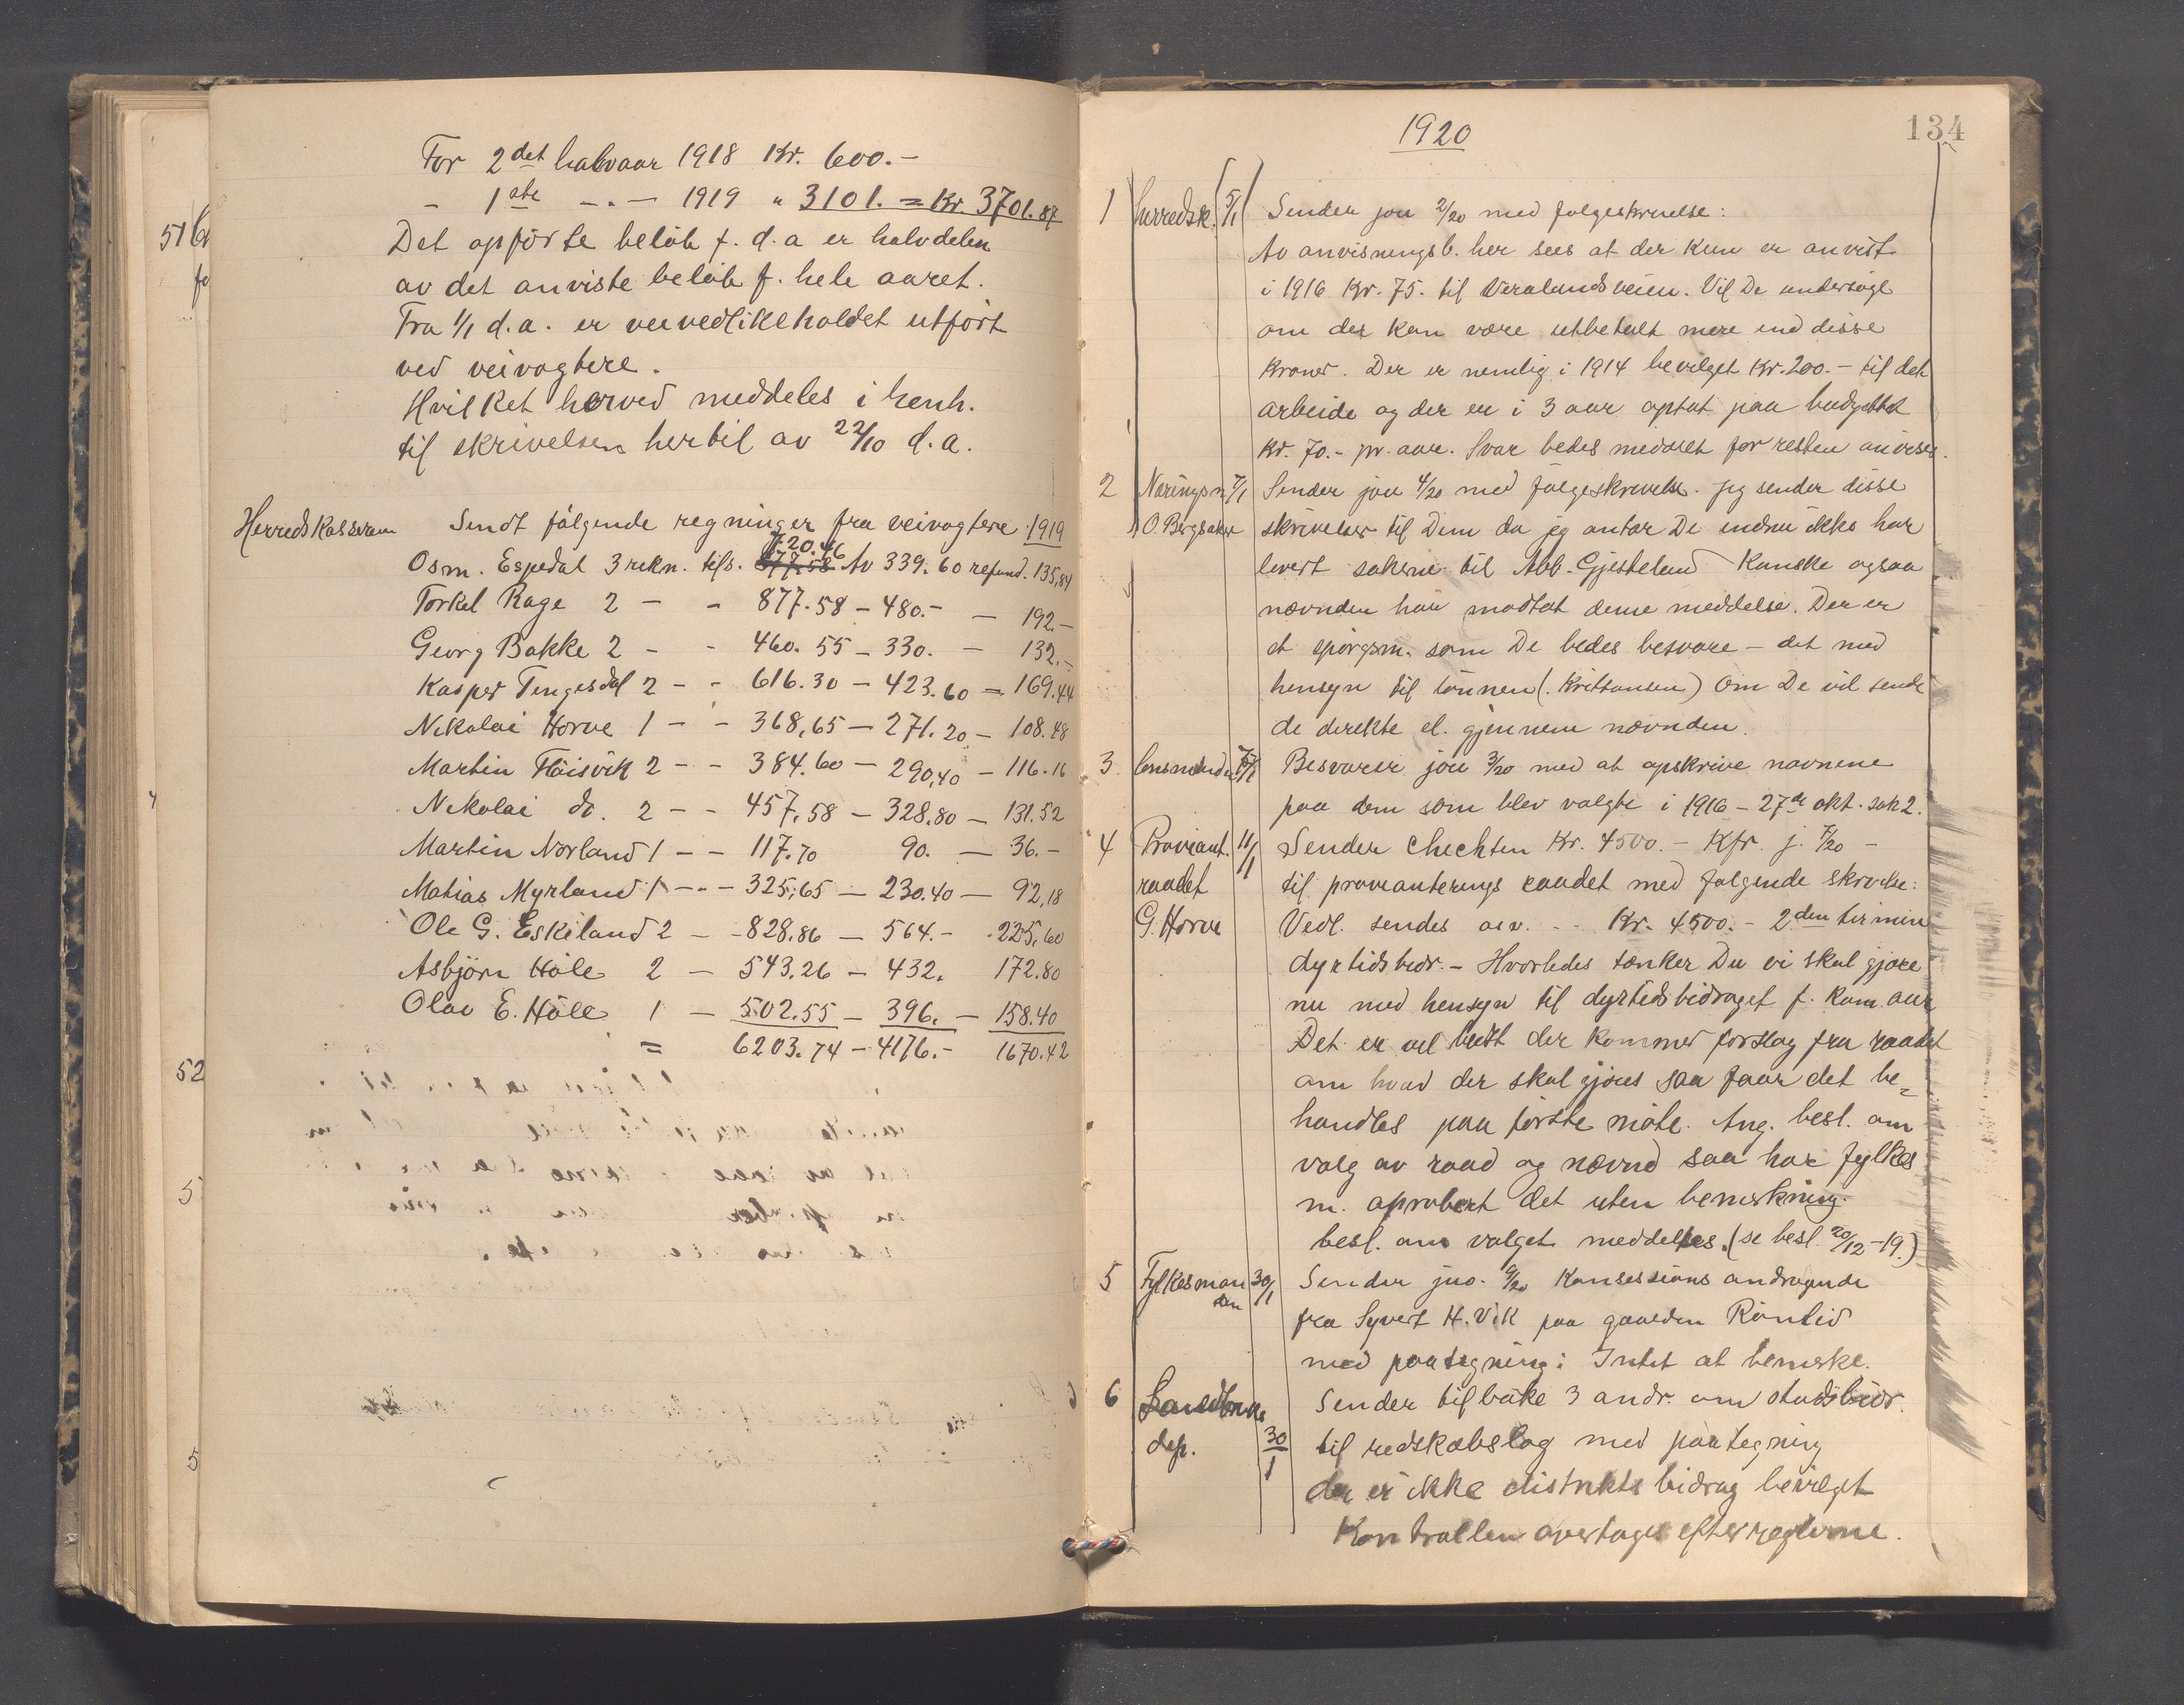 For 2det halvaar 1918 Kr. 600.-
- 1ste - . - 1919 " 3101. = Kr. 3701.87
Det opförte belöb f. d. a er halvdelen
av det anviste belöb f. hele aaret.
Fra 1/1 d.a. er veivedlikeholdet utfört
ved veivogtere.
Hvilket herved meddeles i henh.
til skrivelsen hertil av 22/10 d.a.
Herredskasseran Sendt fölgende regninger fra veivogtere 1919
Osm. Espedal 3 rekn. tils. 877.58 720.46 Av 339.60 refund. 135,84
Torkel Rage 2 - - 877.58 - 480.- - 192.-
Georg Bakke 2 - - 460.55 - 330. - 132.-
Kasper Tengesdal 2 - - 616.30 - 423.60 - 169.44
Nikolai Horve 1 - - 368,65 - 271.20 - 108.48
Martin Flöisvik 2 - - 384.60 - 290,40 - 116.16
Nikolai do. 2 - - 457,58 - 328.80 - 131.52
Martin Norland 1 - - 117.70 90. - 36.-
Matias Myrland 1 - - 325,65 - 230.40 - 92,18
Ole G. Eskeland 2 - - 828.86 - 564.- 225,60
Asbjörn Höle 2 - 543.26 - 432. 172.80
Olav E. Höle 1 - 502.55 - 396. - 158.40
= 6203.74 - 4176.- 1670.42
1920
134
1 Herredsk. 5/1 Sender jou 2/20 med folgeskrivelse:
Av anvisningsb. her sees at der kun er anvist
i 1916 Kr. 75. til Veralandsveien. Vil De undersöge
om der kan være utbetalt mere end disse
kroner. Der er nemlig i 1914 bevilget Kr. 200.- til det
arbeide og der er i 3 aar optat paa budgettet
kr. 70.- pr. aar. Svar bedes medsuelt for resten anvises.
2 Næringsn. 7/1 Sender jou 4/20 med fölgeskrivelse. Jeg sender disse
O. Bergsaker skrivelser til Dem da jeg antar De endnu ikke har
levert sakerne til Abb. Gjesteland Kanske ogsaa
nævnden har modtat denne meddelse. Der er
et spörgsm. som De bedes besvare - det med
hensyn til lönnen (. Kristiansen) Om De vil sende
de direkte el. gjennem nævnden.
3. Lensmanden 7/1 Besvarer jou 3/20 med at opskrive navnene
paa dem som blev valgte i 1916 - 27de okt. sak 2.
4 Proviant. 11/1 Sender checkten Kr. 4500.- Kfr. j. 7/20 -
raadet til provianterings raadet med folgende skrivelse:
G. Horve Vedl. sendes asv. - - Kr. 4500.- 2den termin
dyrtidsbidr. - Hvorledes tænker Du vi skal gjöre
nu med hensyn til dyrtidsbidraget f. kom. aar
Det er vel bedst der kommer forslag fra raadet
om hvad der skal gjöres saa faar det be=
handles paa förste möte. Ang. besl. om
valg av raad og nævnd saa har fylkes
m. aprobert det uten bemerkning.
besl. om valget meddeltes. (se besl. 20/12 -19.)
5 Fylkesmanden 30/1 Sender jno. 9/20 Konsessions andragende
fra Syvert H. Vik paa gaarden Röntid
med paategning: Intet at bemerke.
6 Landbruks Sender tilbake 3 andr. om statsbidr.
dep. 30/1 til redskabslag med paategning
der er ikke distrikts bidrag bevilget
Kontrollen overtages efter reglerne.